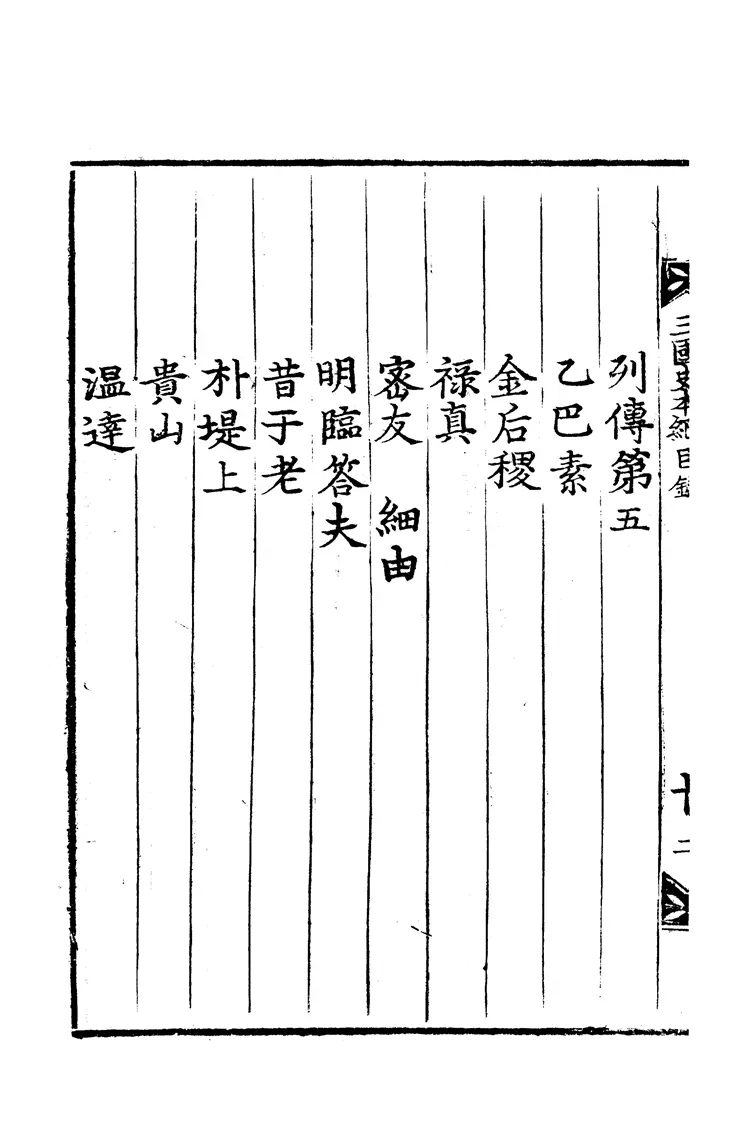 三國史本紀目録
十二
列傳第五
乙巴素
金后稷
祿真
密友　細由
明臨答夫
昔于老
朴堤上
貴山
温達